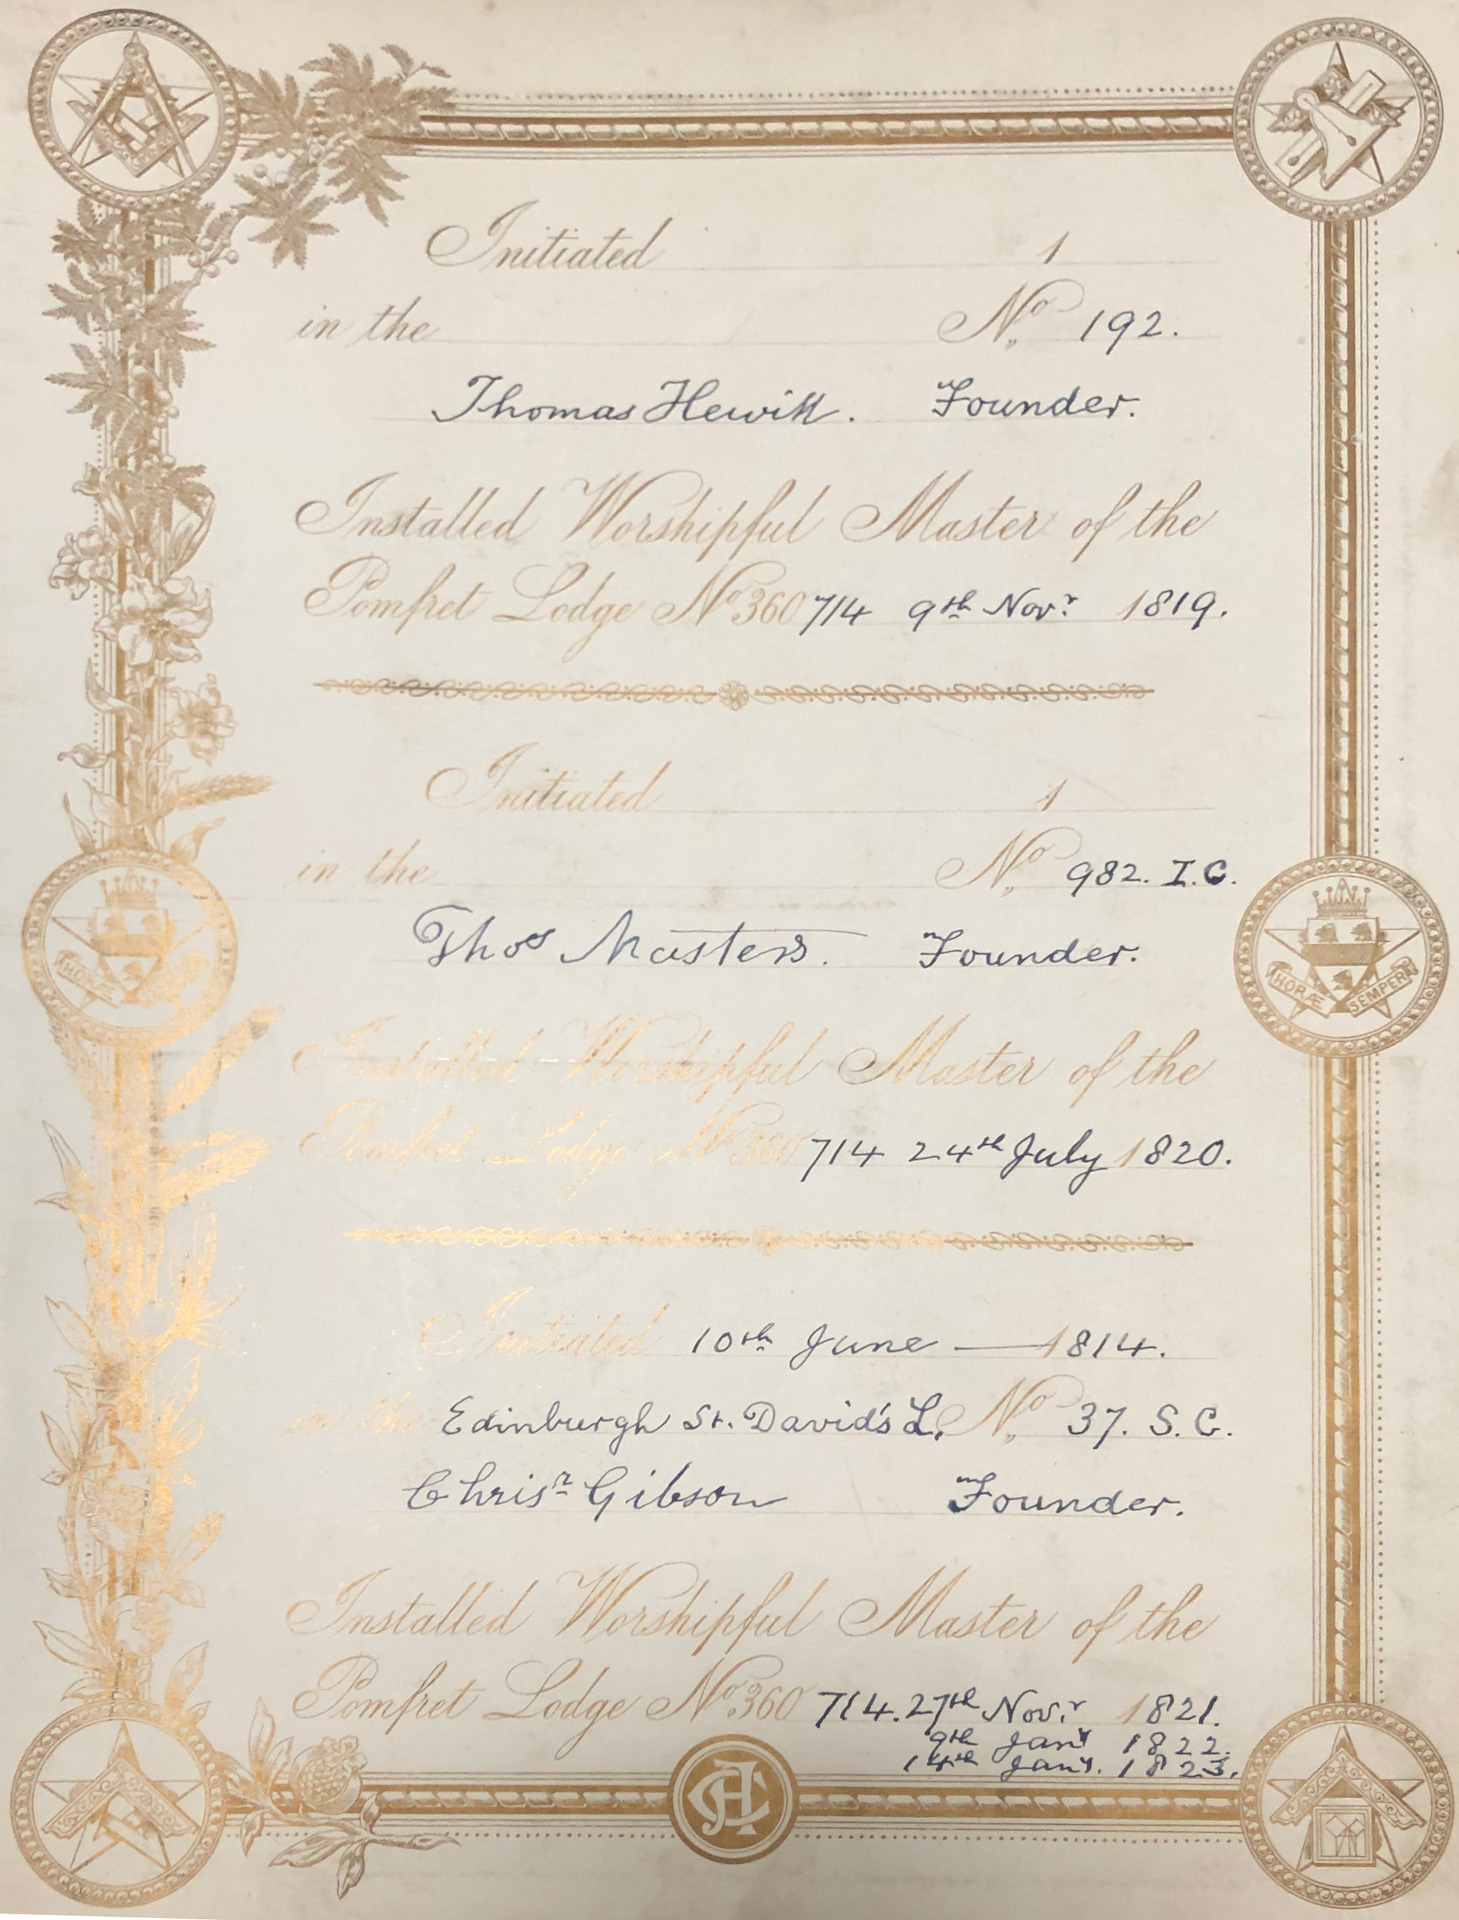 Initiated 1
in the No. 192.
Thomas Hewitt. Founder.
Installed Worshipful Master of the
Pomfret Lodge No. 360 714 9th Novr. 1819.
Initiated 1
in the No. 982. I.C.
Thos Masters. Founder.
HORÆ SEMPER
HORÆ
Installed Worshipful Master of the
Pomfret Lodge No. 360 714 24th July 1820.
Initiated 10th June — 1814.
in the Edinburgh St. David's L. No. 37. S.C.
Chrisr Gibson Founder.
Installed Worshipful Master of the
Pomfret Lodge No. 360 714. 27th Novr. 1821.
9th Jany 1822.
14th Jany. 1823.